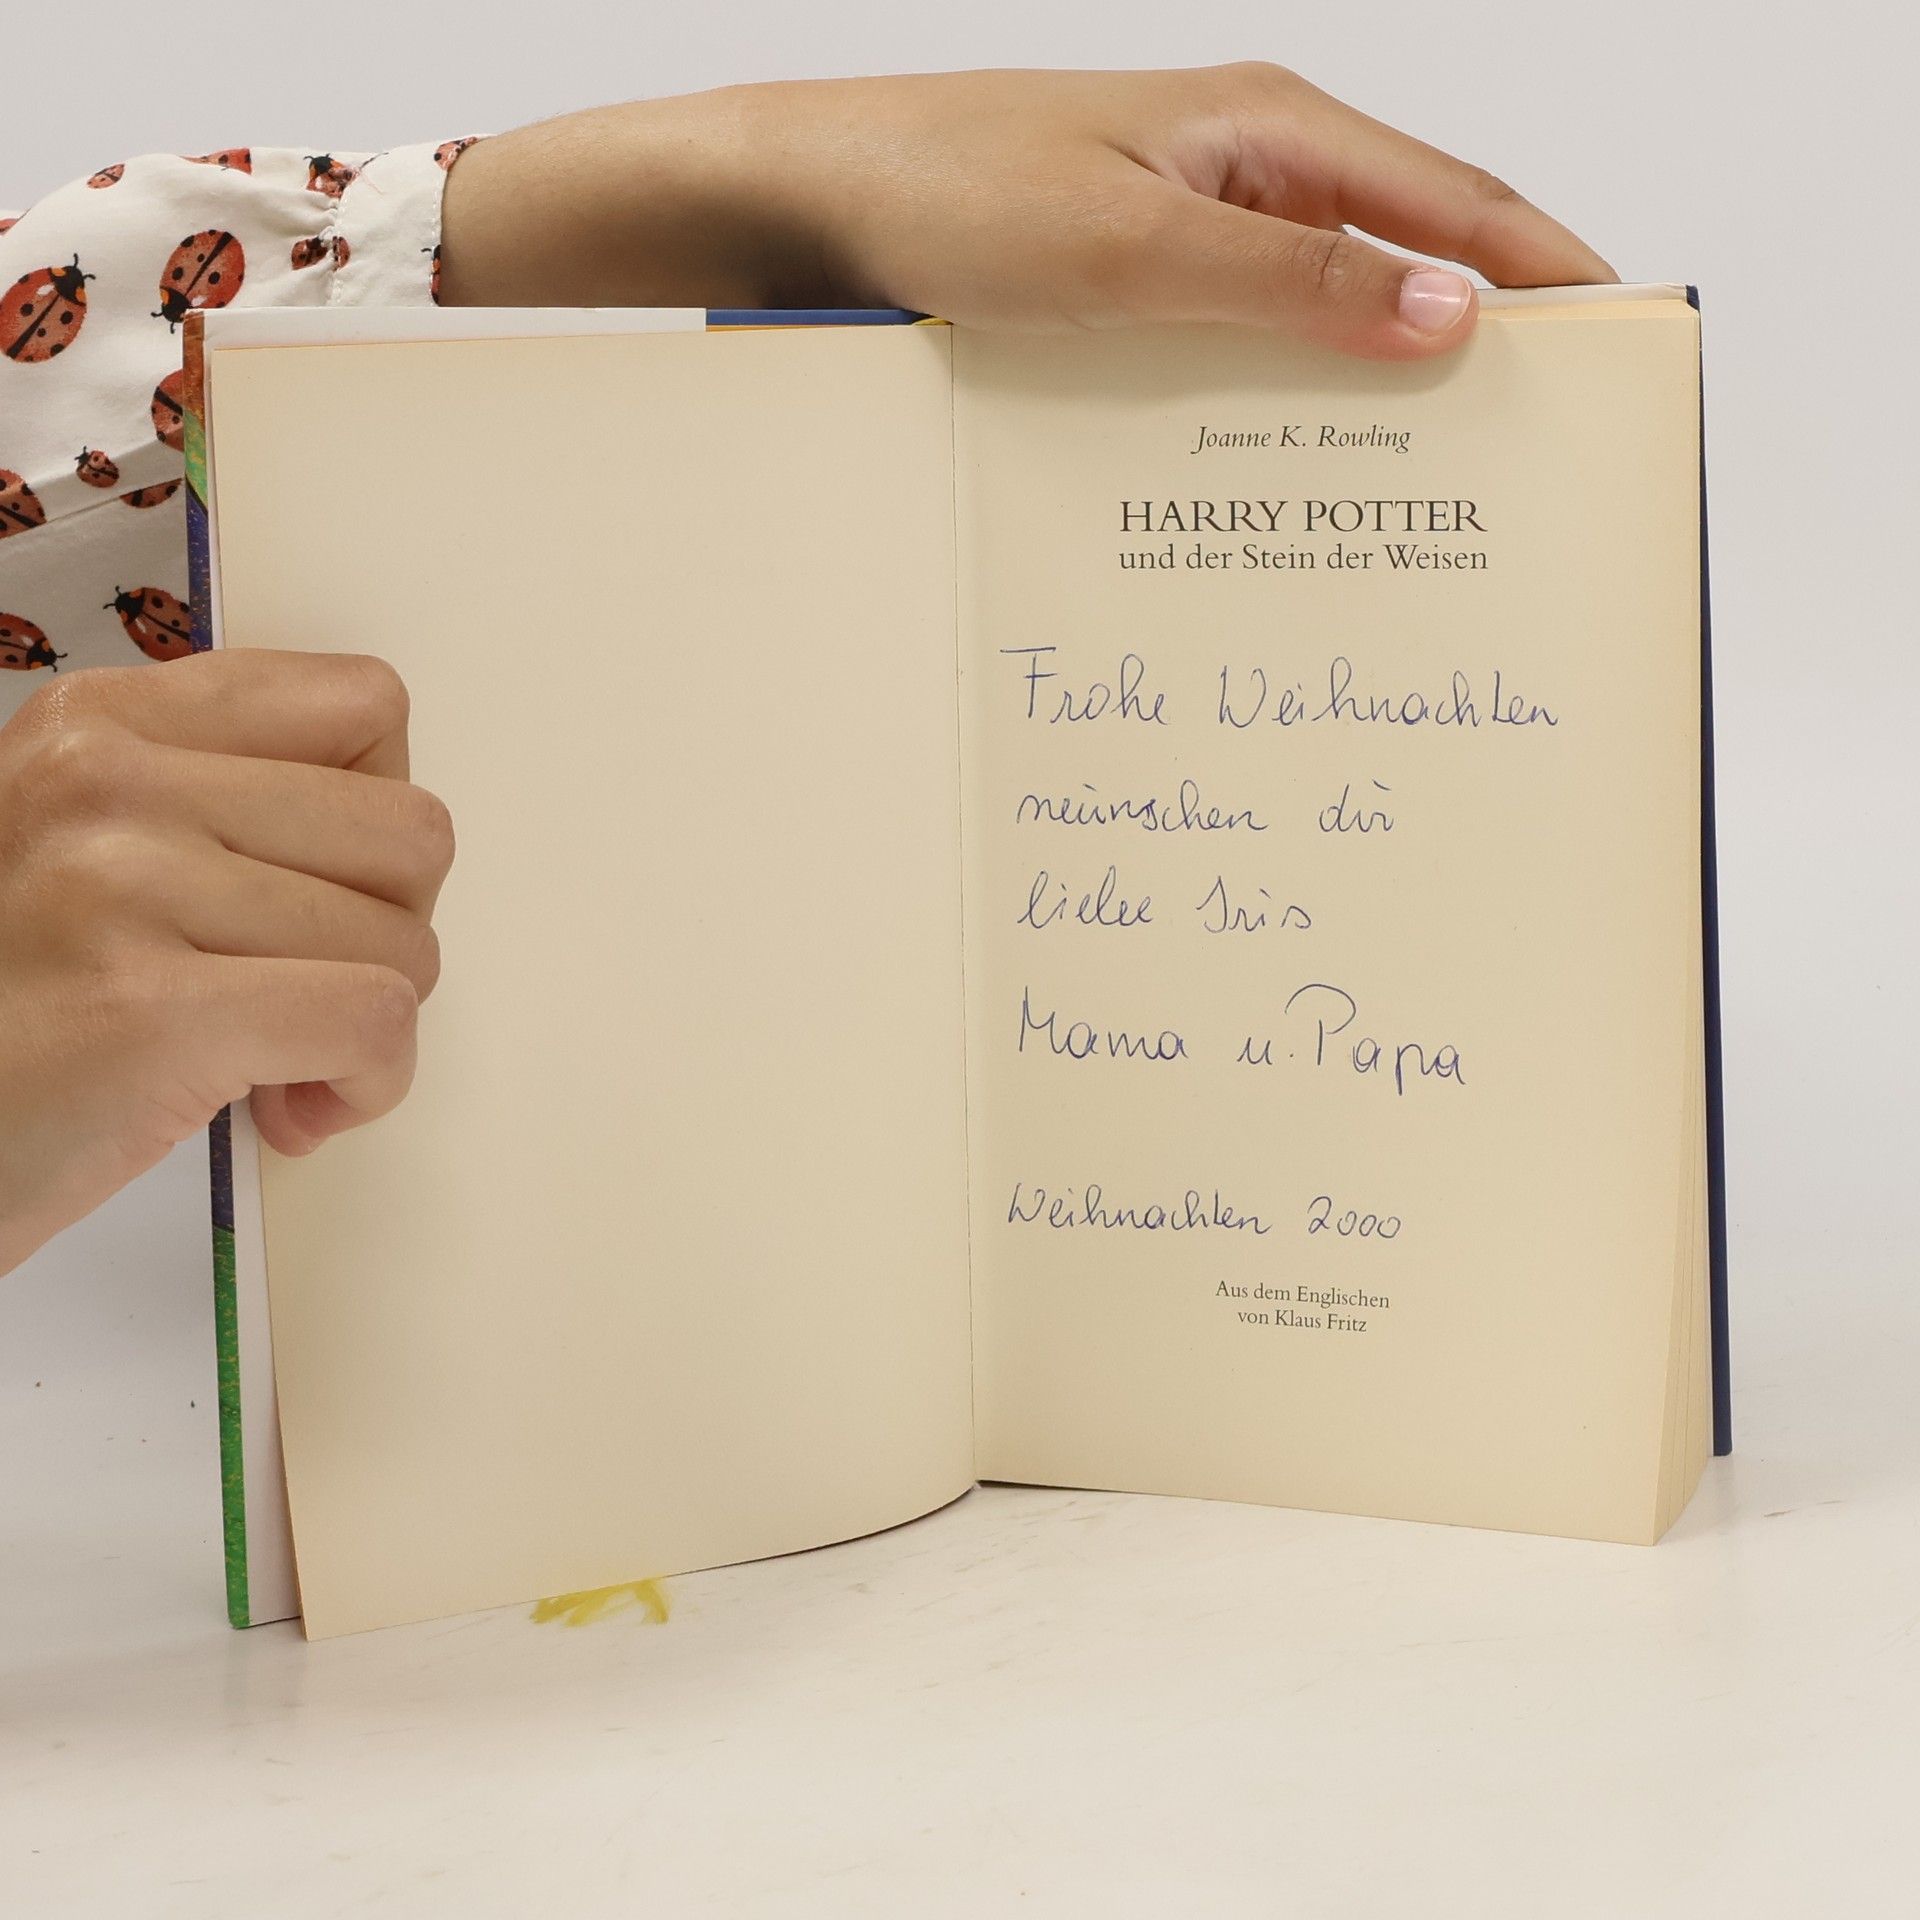 Joanne K. Rowling
HARRY POTTER
und der Stein der Weisen
Frohe Weihnachten
wünschen dir
liebe Iris
Mama u. Papa
Weihnachten 2000
Aus dem Englischen
von Klaus Fritz